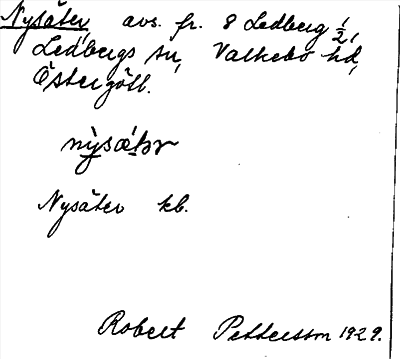 Nysäter, avs. fr. 8 Ledberg 1/2,
Ledbergs sn, Valkebo hd,
Östergötl.
nỳsæ̀tər
Nysäter kb.
Robert Pettersson 1929.